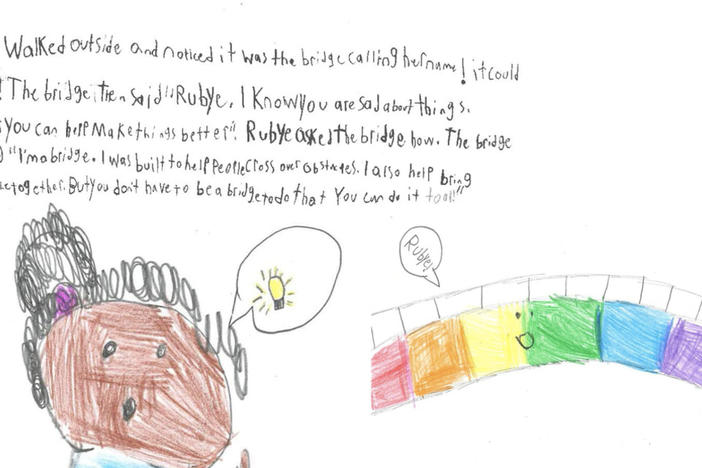 Walked outside and noticed it was the bridge calling her name! it could
! The bridge then said "Rubye, I Know you are sad about things.
you can help Make things better". Rubye asked the bridge how. The bridge
"I'm a bridge. I was built to help people cross over obstacles. I also help bring
together. But you don't have to be a bridge to do that You can do it too!!"
Rubye!